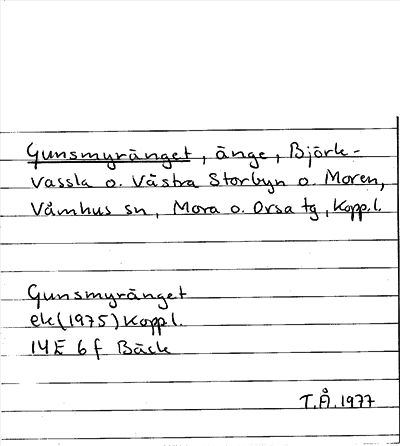 Gunsmyränget, änge, Björk-
vassla o. Västra Storbyn o. Moren,
Våmhus sn, Mora o. Orsa tg, Koppl.
Gunsmyränget
ek(1975) Koppl.
14E 6f Bäck
T.Å. 1977